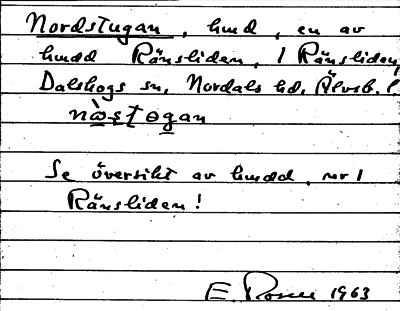 Nordstugan, hmd, en av
hmdd Ränsliden, 1 Ränsliden,
Dalskogs sn, Nordals hd, Älvsb. l
nòstogan
Se översikt av hmdd, nr 1
Ränsliden!
E. Rosell 1963